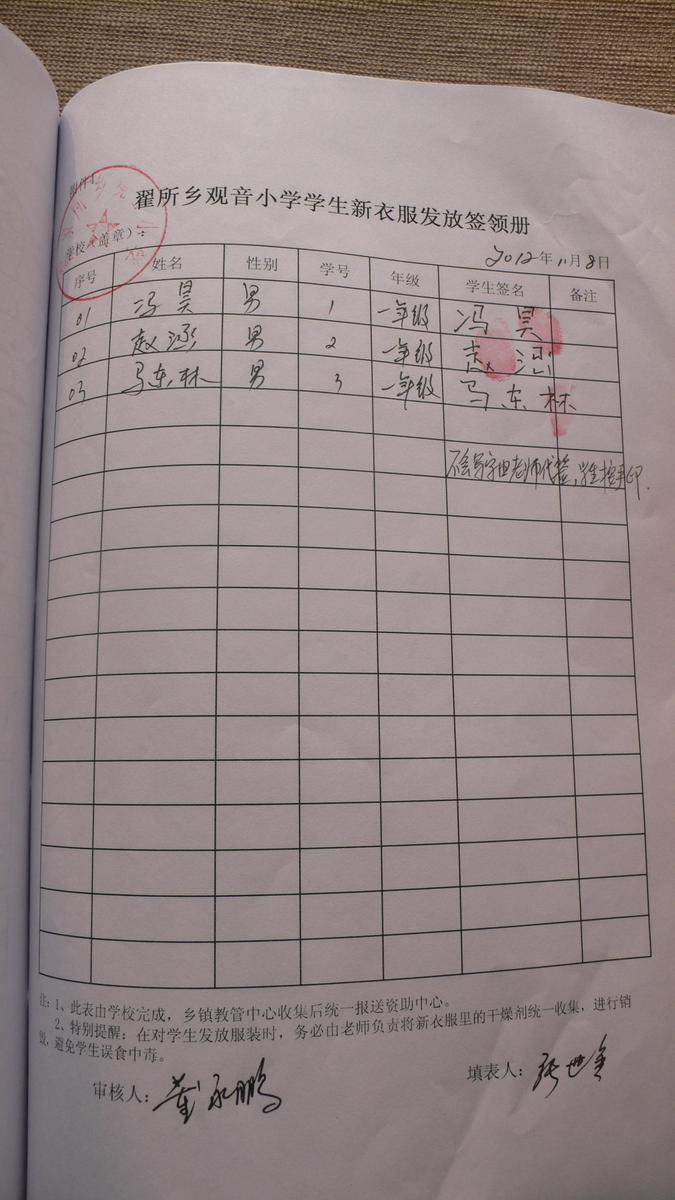 附件1
翟所乡观音小学学生新衣服发放签领册
学校（盖章）：
2012年11月8日
序号 姓名 性别 学号 年级 学生签名 备注
01 冯昊 男 1 一年级 冯昊
02 赵涵 男 2 一年级 赵涵
03 马东林 男 3 一年级 马东林
不会写字由老师代签，学生按手印.
注：1、此表由学校完成，乡镇教管中心收集后统一报送资助中心。
2、特别提醒：在对学生发放服装时，务必由老师负责将新衣服里的干燥剂统一收集，进行销
毁，避免学生误食中毒。
审核人：董永鹏
填表人：张世金